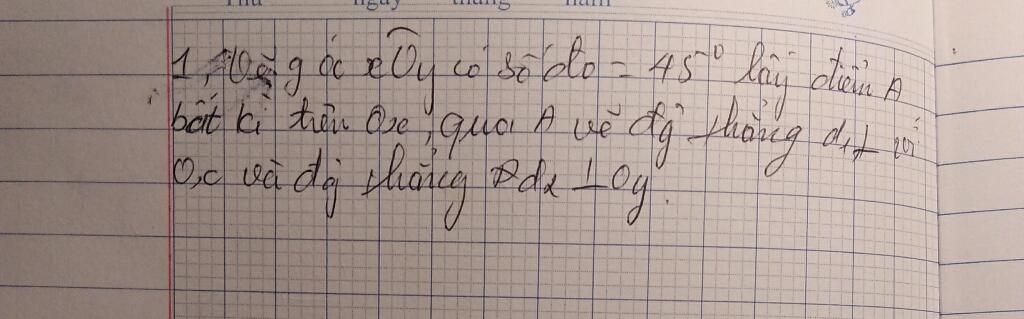 Thứ ngày tháng năm
1, Vẽ góc xOy có số đo = 45° lấy điểm A
bất kì trên Ox, qua A vẽ đg thẳng d1 ⊥ với
Ox và đg thẳng d2 ⊥ Oy.